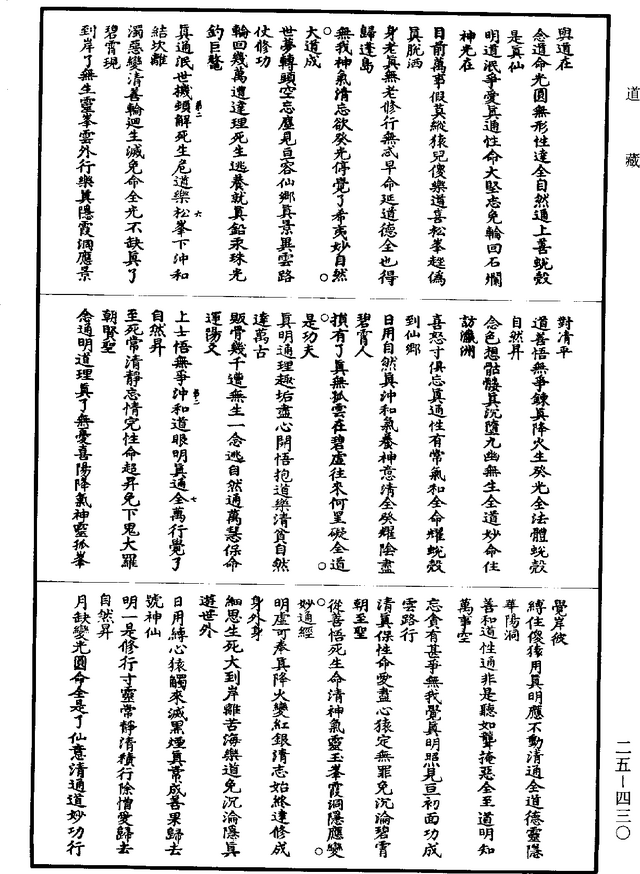 道藏
與道在
念道命光圓無形性達全自然通上善蛻殼
是真仙
明道泯爭愛真通性命大堅志免輪回石爛
神光在
目前萬事假莫縱猿兒傻樂道喜松峯趓偽
真脫洒
身老真無老修行無忒早命延道德全也得
歸蓬島
無我神氣清忘欲癸光停覺了希夷妙自然
大道成
世夢轉頭空忘塵見亘容仙鄉真景異雲路
仗修功
輪回幾萬遭達理死生逃養就真鉛汞珠光
釣巨鼇
真通泯世機頓解死生危道樂松峯下沖和
結坎離
濁惡變清善輪迴生滅免命全光不缺真了
碧霄現
到岸了無生靈峯雲外行樂真隱霞洞應景
對清平
道善悟無爭鍊真降火生癸光全法體蛻殼
自然昇
念色想骷髏真沉墮九幽無生全道妙命住
訪瀛洲
喜怒寸俱忘真通性有常氣和全命耀蛻殼
到仙鄉
日用自然真沖和氣養神意清全癸耀陰盡
碧霄人
損有了真無孤雲在碧虛往來何罣礙全道
是功夫
真明通理趣垢盡心開悟抱道樂清貧自然
達萬古
販骨幾千遭無生一念逃自然通萬慧保命
運陽爻
上士悟無爭沖和道眼明真通全萬行覺了
自然昇
至死常清靜忘情完性命超昇免下鬼大羅
朝賢聖
念通明道理真了無憂喜陽降氣神靈孤峯
覺岸彼
縛住傻猿用真明應不動清通全道德靈隱
華陽洞
善和道性通非是聽如聾掩惡全至道明知
萬事空
忘貪有甚爭無我覺真明照見亘初面功成
雲路行
清真保性命愛盡心猿定無罪免沉淪碧霄
朝至聖
從善悟死生命清神氣靈玉峯霞洞隱應變
妙通經
明虛可奉真降火變紅銀清志始終達修成
身外身
細思生死大到岸離苦海樂道免沉淪隱真
遊世外
日用縛心猿觸來滅黑煙真常成善果歸去
號神仙
明一是修行寸靈常靜清積行除憎愛歸去
自然昇
月缺變光圓命全是了仙意清通道妙功行
二五－四三〇